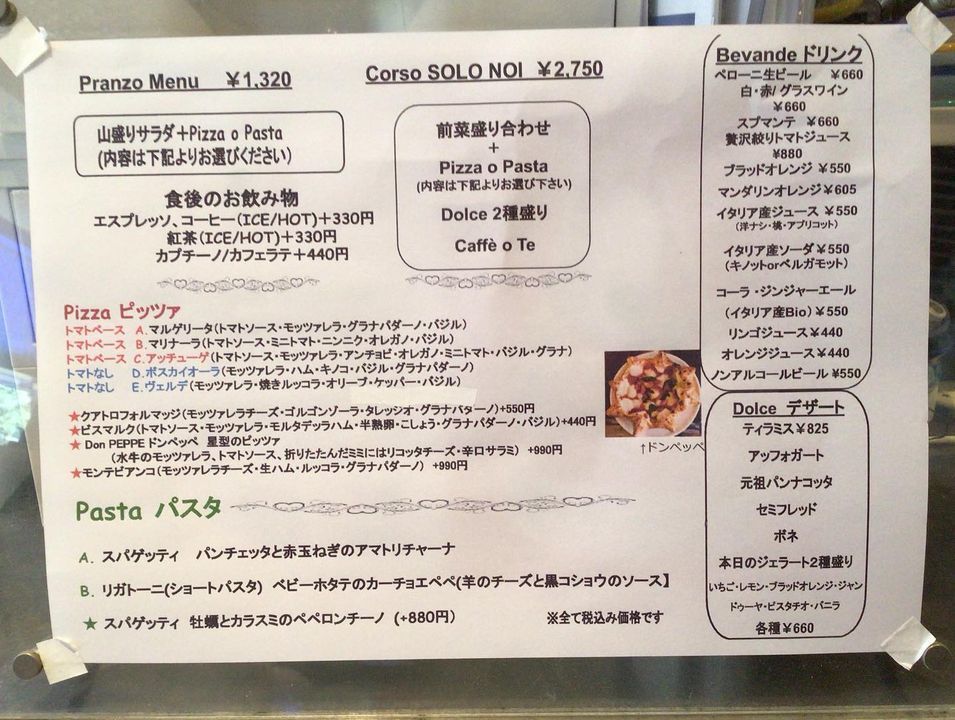 Pranzo Menu ￥1,320
山盛りサラダ＋Pizza o Pasta
(内容は下記よりお選びください)
食後のお飲み物
エスプレッソ、コーヒー(ICE/HOT)＋330円
紅茶(ICE/HOT)＋330円
カプチーノ/カフェラテ＋440円
Corso SOLO NOI ￥2,750
前菜盛り合わせ
+
Pizza o Pasta
(内容は下記よりお選び下さい)
Dolce 2種盛り
Caffè o Te
Pizza ピッツァ
トマトベース A.マルゲリータ(トマトソース・モッツァレラ・グラナパダーノ・バジル)
トマトベース B.マリナーラ(トマトソース・ミニトマト・ニンニク・オレガノ・バジル)
トマトベース C.アッチューゲ(トマトソース・モッツァレラ・アンチョビ・オレガノ・ミニトマト・バジル・グラナ)
トマトなし D.ボスカイオーラ(モッツァレラ・ハム・キノコ・バジル・グラナパダーノ)
トマトなし E.ヴェルデ(モッツァレラ・焼きルッコラ・オリーブ・ケッパー・バジル)
★クアトロフォルマッジ(モッツァレラチーズ・ゴルゴンゾーラ・タレッジオ・グラナパダーノ)+550円
★ビスマルク(トマトソース・モッツァレラ・モルタデッラハム・半熟卵・こしょう・グラナパダーノ・バジル)+440円
★ Don PEPPE ドンペッペ 星型のピッツァ
(水牛のモッツァレラ、トマトソース、折りたたんだミミにはリコッタチーズ・辛口サラミ) +990円
★モンテビアンコ(モッツァレラチーズ・生ハム・ルッコラ・グラナパダーノ) +990円
↑ドンペッペ
Pasta パスタ
A. スパゲッティ パンチェッタと赤玉ねぎのアマトリチャーナ
B. リガトーニ(ショートパスタ) ベビーホタテのカーチョエペペ(羊のチーズと黒コショウのソース】
★ スパゲッティ 牡蠣とカラスミのペペロンチーノ (+880円)
※全て税込み価格です
Bevande ドリンク
ペローニ生ビール ￥660
白・赤/グラスワイン
￥660
スプマンテ ￥660
贅沢絞りトマトジュース
¥880
ブラッドオレンジ ￥550
マンダリンオレンジ￥605
イタリア産ジュース ￥550
(洋ナシ・桃・アプリコット)
イタリア産ソーダ￥550
(キノットorベルガモット)
コーラ・ジンジャーエール
(イタリア産Bio)￥550
リンゴジュース￥440
オレンジジュース￥440
ノンアルコールビール ¥550
Dolce デザート
ティラミス￥825
アッフォガート
元祖パンナコッタ
セミフレッド
ボネ
本日のジェラート2種盛り
いちご・レモン・ブラッドオレンジ・ジャン
ドゥーヤ・ピスタチオ・バニラ
各種￥660